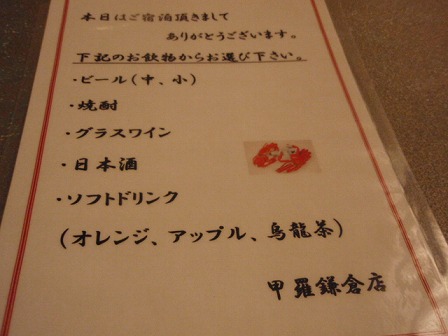 本日はご宿泊頂きまして
ありがとうございます。
下記のお飲物からお選び下さい。
・ビール(中、小)
・焼酎
・グラスワイン
・日本酒
・ソフトドリンク
(オレンジ、アップル、烏龍茶)
甲羅鎌倉店